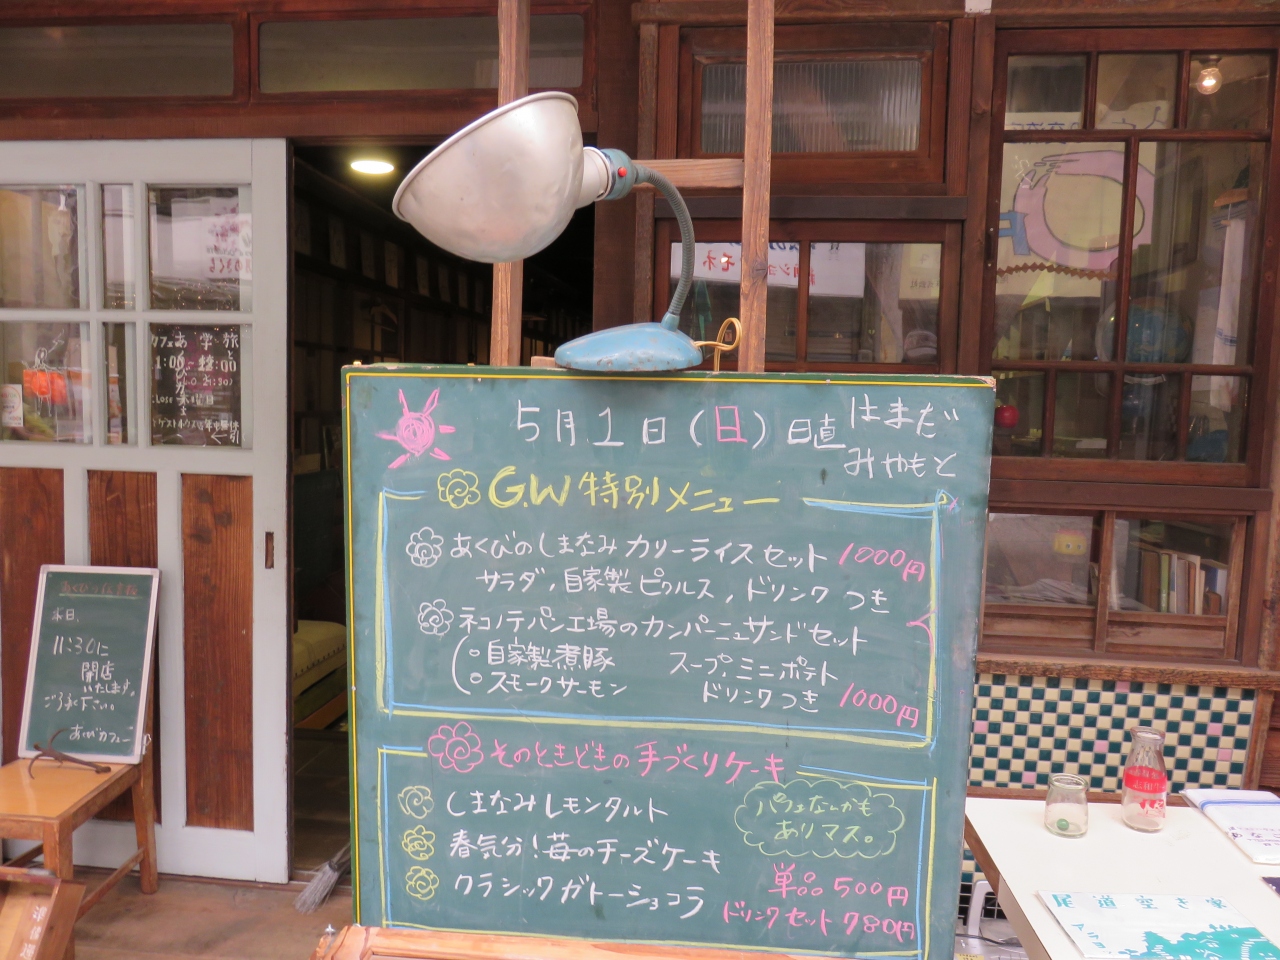 5月1日(日)日直 はまだ
みやもと
G.W 特別メニュー
あくびのしまなみカリーライスセット 1000円
サラダ,自家製ピクルス,ドリンクつき
ネコノテパン工場のカンパーニュサンドセット
自家製煮豚 スープ,ミニポテト
スモークサーモン ドリンクつき 1000円
そのときどきの手づくりケーキ
しまなみレモンタルト
パフェなんかも
ありマス。
春気分!苺のチーズケーキ
クラシックガトーショコラ
単品500円
ドリンクセット780円
本日、
11:30に
開店
いたします。
ご了承下さい。
あくびカフェー
尾道空き家